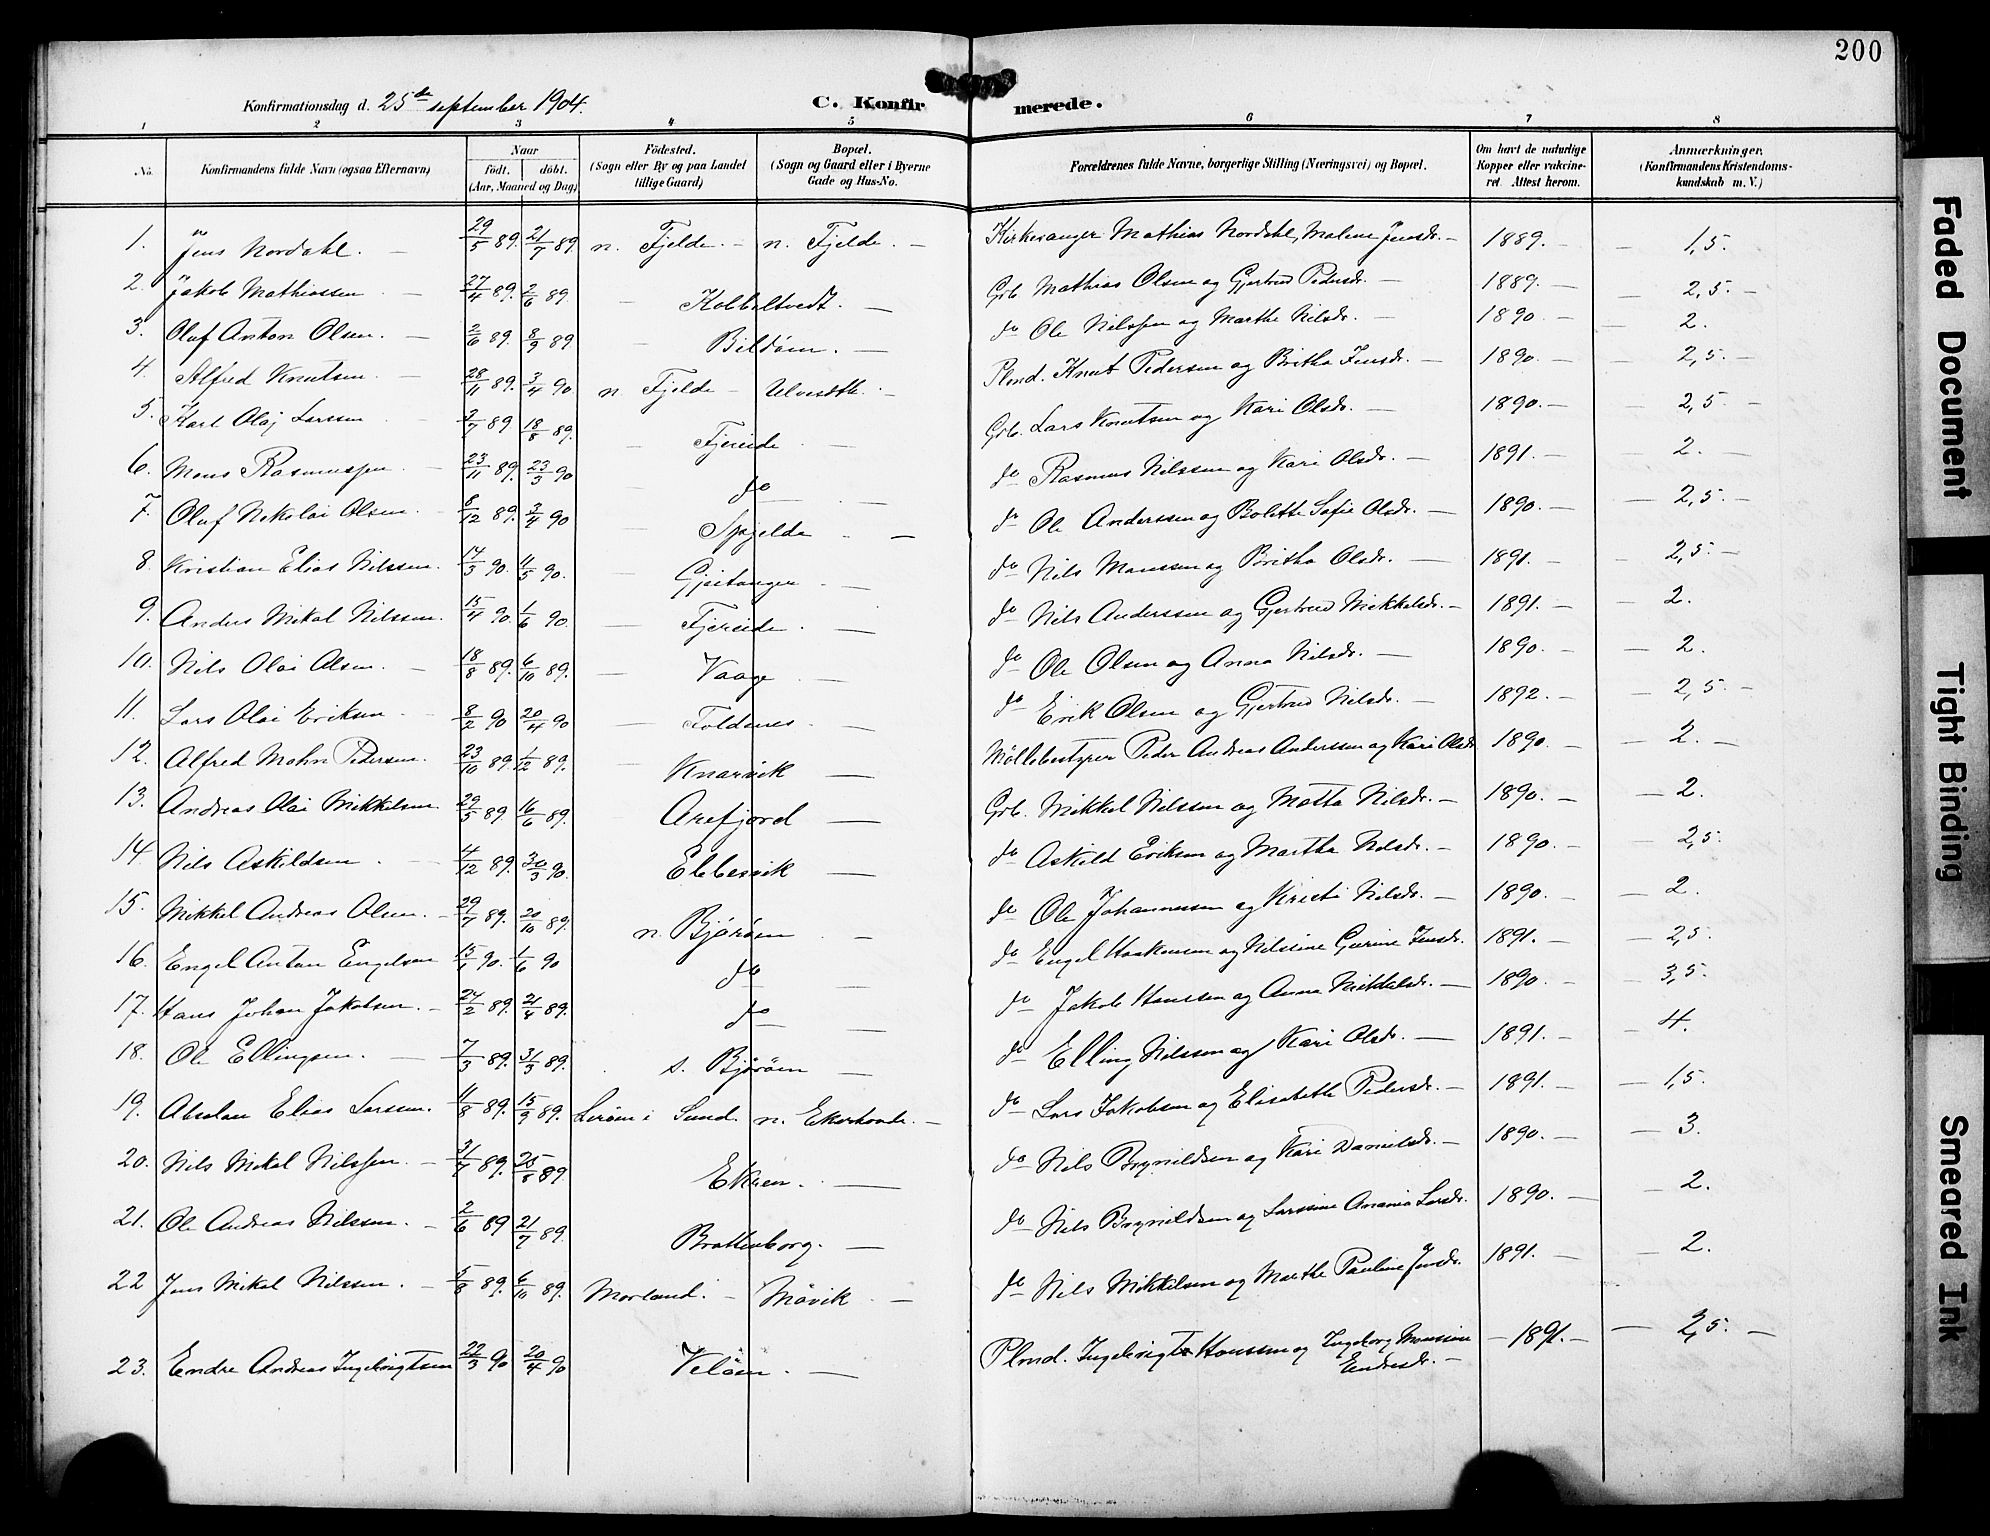 200
Konfirmationsdag d. 25de september 1904.
C. Konfirmerede.
1 2 3 4 5 6 7 8
No. Konfirmandens fulde Navn (ogsaa Efternavn) Naar født. døbt. (Aar, Maaned og Dag) Fødested. (Sogn eller By og paa Landet tillige Gaard) Bopæl. (Sogn og Gaard eller i Byerne Gade og Hus-No. Forældrenes fulde Navne, borgerlige Stilling (Næringsvei) og Bopæl. Om havt de naturlige Kopper eller vakcineret. Attest herom. Anmærkninger. (Konfirmandens Kristendomskundskab m. V.)
1. Jens Nordahl. — 29/5 89. 21/7 89 n. Fjelde. — n. Fjelde. — Kirkesanger Mathias Nordahl, Malene Jensdr. — 1889. — — 1,5.
2. Jakob Mathiassen — 27/4 89. 2/6 89 — Kolbeltvedt. — Grb. Mathias Olsen og Gjertrud Pedersdr. — 1889. — — 2,5. —
3. Olaf Anton Olsen. — 2/6 89. 8/9 89. — Bildöen. — do Ole Nilssen og Marthe Nilsdr. — 1890. — — 2.
4. Alfred Knutsen. — 28/11 89. 3/4 90. n. Fjelde — Ulvesdth. — Plmd. Knut Pedersen og Britha Jensdr. — 1890. — — 2,5. —
5. Karl Olaj Larssen 2/7 89 18/8 89. — Fjereide — Grb. Lars Knutsen og Kari Olsdr. — 1890. — — 2,5 —
6. Mons Rasmussen — 23/11 89. 23/3 90 — do — do Rasmus Nilssen og Kari Olsdr. — 1891. — 2. —
7. Olaf Nikolai Olsen. — 8/12 89. 3/4 90 — Spjelde — do Ole Anderssen og Bolette Sofie Olsdr. — 1890. — — 2,5. —
8. Kristian Elias Nilssen. 14/3 90. 11/5 90. — Gjeitanger — do Nils Monssen og Britha Olsdr. — 1891. — — 2,5. —
9. Anders Mikal Nilssen. 15/4 90. 1/6 90. — Fjereide. — do Nils Anderssen og Gjertrud Mikkelsdr. — 1891. — — 2.
10. Nils Olai Olsen. — 18/8 89. 6/10 89. — Vaage — do Ole Olsen og Anna Nilsdr. — 1890. — — 2.
11. Lars Olai Eriksen — 8/2 90 20/4 90 — Foldenes — do Erik Olsen og Gjertrud Nilsdr. — 1892. — — 2,5. —
12. Alfred Mohn Pedersen. 23/10 89. 1/12 89. — Knarvik — Möllebestyrer Peder Andreas Anderssen og Kari Olsdr 1890. — — 2. —
13. Andreas Olai Mikkelsen 29/5 89. 16/6 89. Arefjord — Grb. Mikkel Nilssen og Matta Nilsdr. — 1890. — — 2.
14. Nils Askildsen. — 4/12 89. 30/3 90. Ebbesvik — do Askild Eriksen og Martha Nilsdr. — 1890. — — 2,5.
15. Mikkel Andreas Olsen. — 29/7 89. 20/10 89. n. Björöen — do Ole Johannessen og Kristi Nilsdr. — 1890. — — 2.
16. Engel Anton Engelsen 90. — 1/6 90 do — do Engel Haakonsen og Nilsine Gurine Jensdr. 1891. — — 2,5.
17. Hans Johan Jakobsen. — 24/2 89. 21/4 89. do — do Jakob Hanssen og Anna Mikkelsdr. — 1890. — — 3,5.
18. Ole Ellingsen. — 7/3 89. 31/3 89. s. Björöen — do Elling Nilssen og Kari Olsdr. — 1891. — — 4.
19. Absalon Elias Larssen. 11/8 89. 15/9 89. Leröen i Sund. n. Ekerhovde. — do Lars Jakobsen og Elisabeth Pedersdr. — 1891. — — 1,5.
20. Nils Mikal Nilssen. — 31/7 89. 25/8 89 Ekren. — do Nils Brynildsen og Kari Danielsdr. — 1890. — — 3.
21. Ole Andreas Nilssen. — 2/6 89 21/7 89. Brattenborg. — do Nils Brynildsen og Larssine Anania Larsdr. 1890. — — 2.
22 Jens Mikal Nilssen. — 5/8 89. 6/10 89. Morland. — Mövik. — do Nils Mikkelsen og Marthe Pauline Jensdr. 1891. — — 2.
23. Endre Andreas Ingebrigtsen 22/3 90 20/4 90 Velöen. — Plmd. Ingebrigt Hanssen og Ingeborg Monssine Endresdr. — — 1891. — — 2,5. —
Faded Document
Tight Binding
Smeared Ink